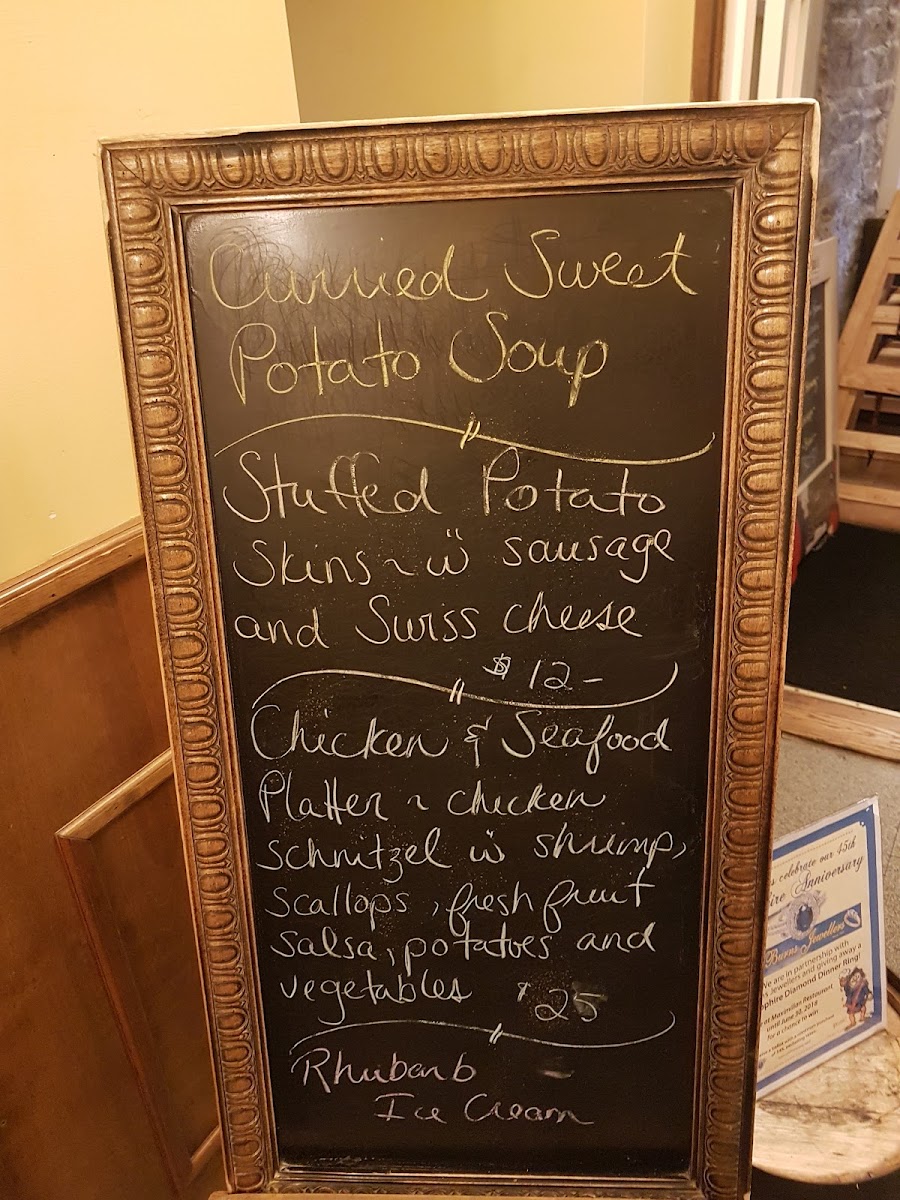 Curried Sweet
Potato Soup
Stuffed Potato
Skins ~ w sausage
and Swiss cheese
$ 12 -
Chicken & Seafood
Platter ~ chicken
schnitzel w shrimp,
scallops, fresh fruit
salsa, potatoes and
vegetables $ 25
Rhubarb
Ice Cream
celebrate our 45th
Anniversary
Burns Jewellers
We are in partnership with
Jewellers and giving away a
Sapphire Diamond Dinner Ring!
at Maximilian Restaurant
until June 30, 2018
for a chance to win